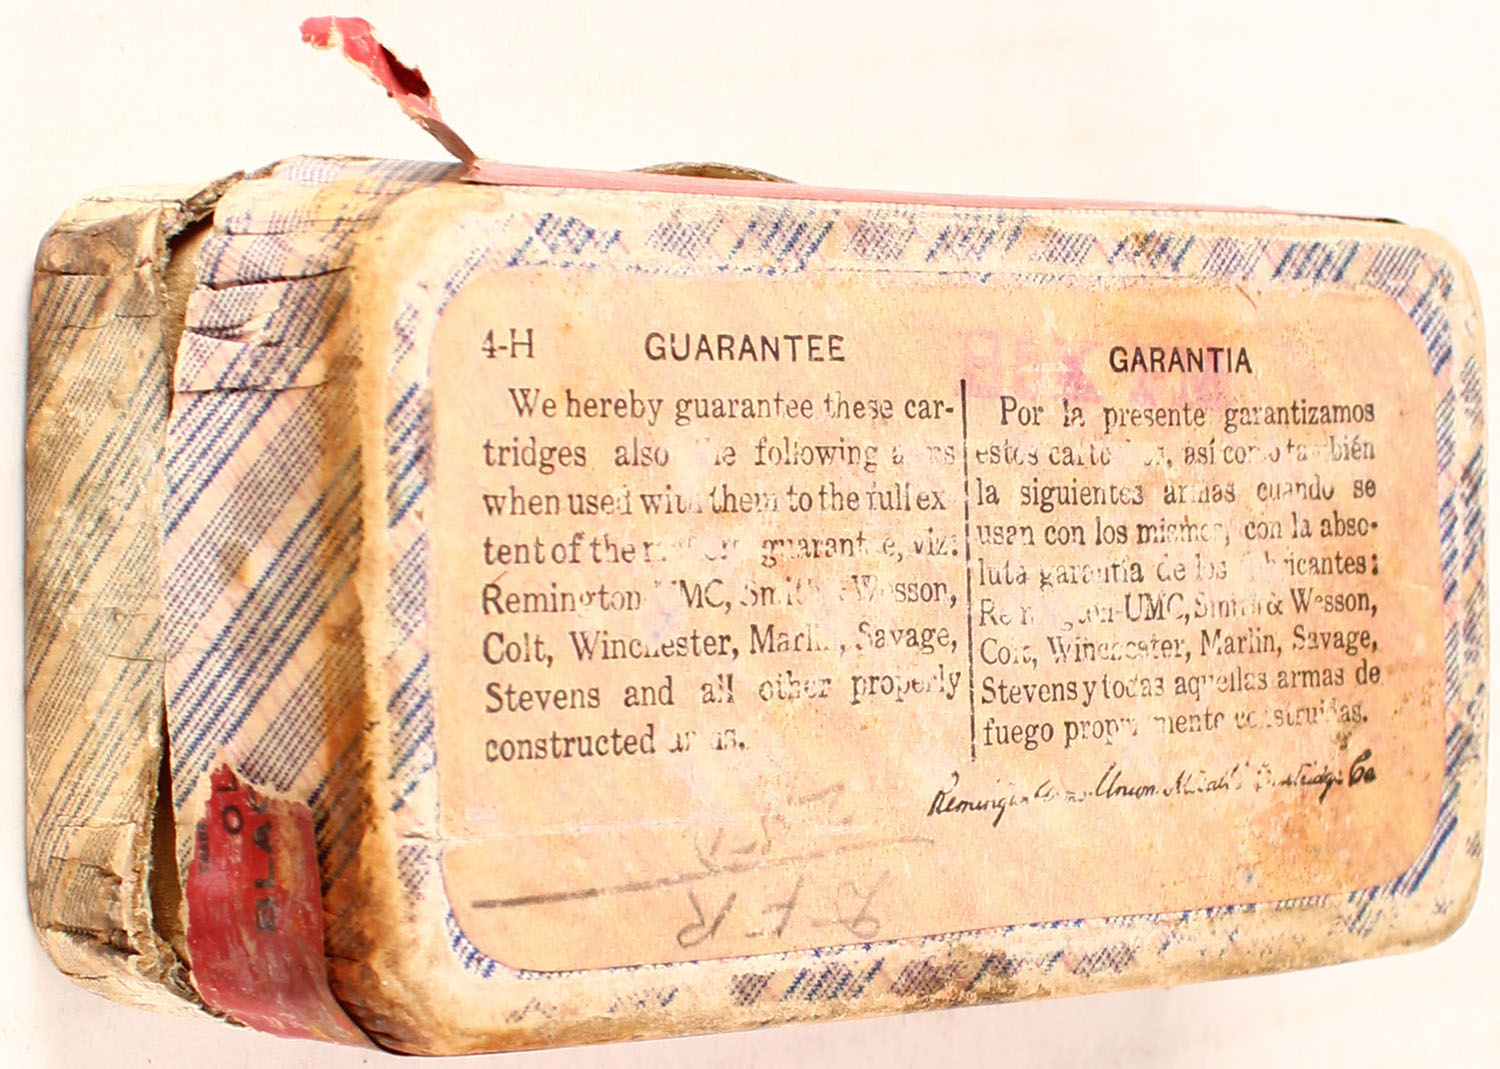 4-H GUARANTEE
We hereby guarantee these car-
tridges also following
when used them to the full ex
tent of the guarantee, viz:
Remington UMC, Smith Wesson,
Colt, Winchester, Marlin, Savage,
Stevens and all other properly
constructed
GARANTIA
Por la presente garantizamos
estos así como también
la siguientes armas cuando se
usan con los mismos, con la abso-
luta garantía de los fabricantes:
Remington-UMC, Smith & Wesson,
Colt, Winchester, Marlin, Savage,
Stevens y todas aquellas armas de
fuego construidas.
Remington Arms Union Metallic Cartridge Co
TRADE
BLAC